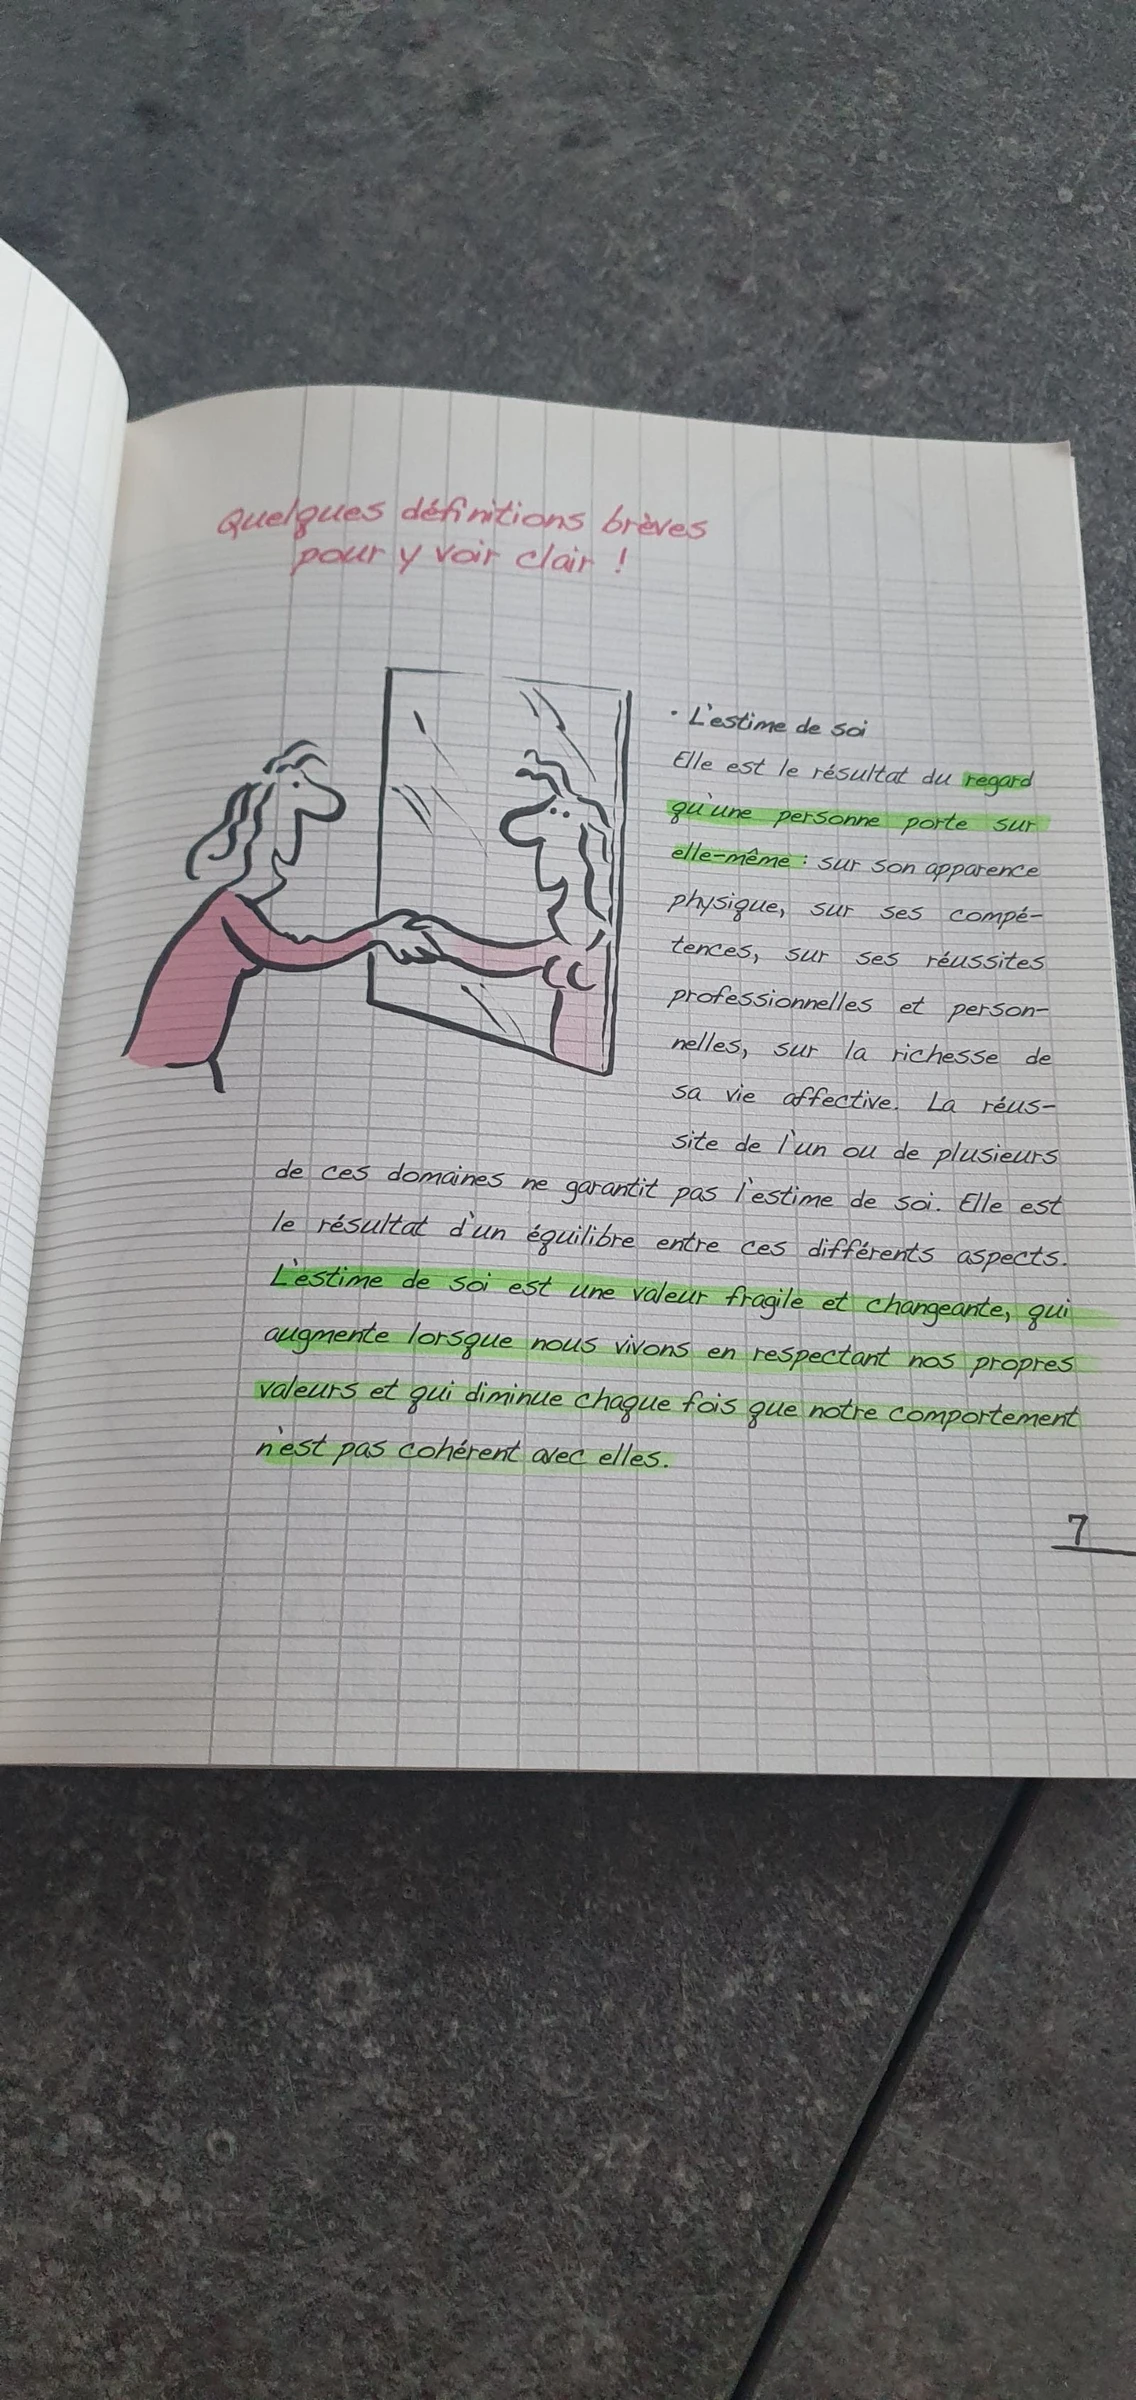 Quelques définitions brèves
pour y voir clair !
· L'estime de soi
Elle est le résultat du regard
qu'une personne porte sur
elle-même : sur son apparence
physique, sur ses compé-
tences, sur ses réussites
professionnelles et person-
nelles, sur la richesse de
sa vie affective. La réus-
site de l'un ou de plusieurs
de ces domaines ne garantit pas l'estime de soi. Elle est
le résultat d'un équilibre entre ces différents aspects.
L'estime de soi est une valeur fragile et changeante, qui
augmente lorsque nous vivons en respectant nos propres
valeurs et qui diminue chaque fois que notre comportement
n'est pas cohérent avec elles.
7